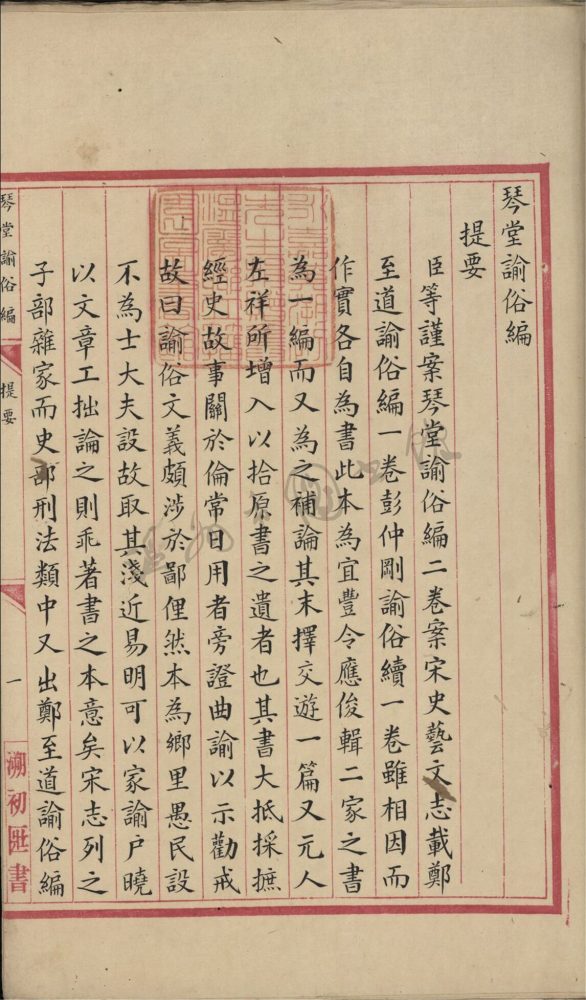 琴堂諭俗編
提要
臣等謹案琴堂諭俗編二卷案宋史藝文志載鄭
至道諭俗編一卷彭仲剛諭俗續一卷雖相因而
作實各自為書此本為宜豐令應俊輯二家之書
為一編而又為之補論其末擇交遊一篇又元人
左祥所增入以拾原書之遺者也其書大抵採摭
經史故事關於倫常日用者旁證曲諭以示勸戒
故曰諭俗文義頗涉於鄙俚然本為鄉里愚民設
不為士大夫設故取其淺近易明可以家諭户曉
以文章工拙論之則乖著書之本意矣宋志列之
子部雜家而史部刑法類中又出鄭至道諭俗編
琴堂諭俗編
提要
一
溯初
書